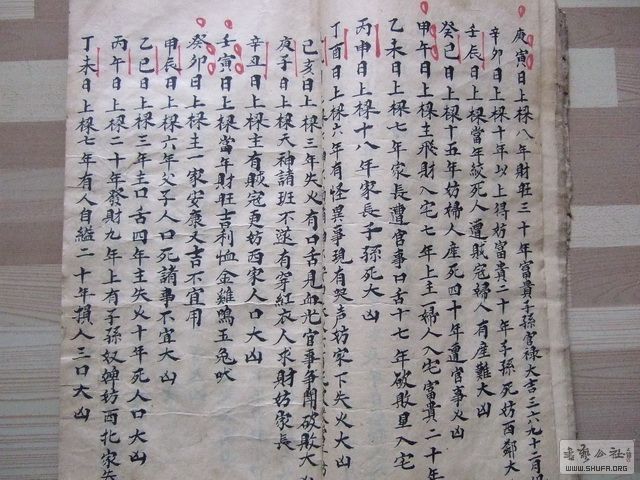 庚寅日上樑八年財旺三十年富貴子孫官祿大吉三六九十二月
辛卯日上樑十年以上得妨富貴二十年子孫死妨西鄰大
壬辰日上樑當年絞死人遭賊寇婦人有產難大凶
癸巳日上樑十五年妨婦人產死四十年遭官事火凶
甲午日上樑主飛財入宅七年上主一婦人入宅富貴二十年
乙未日上樑七年家長遭官事口舌十七年破敗里入宅
丙申日上樑十八年家長子孫死大凶
丁酉日上樑六年有怪異事現有哭声妨家下失火大凶
己亥日上樑三年失火有口舌見血光官事爭鬧破敗大
庚子日上樑天神諸班不遂有穿紅衣人求財妨家長
辛丑日上樑主有賊寇更妨西家人口大凶
壬寅日上樑當年財旺吉利恤金雞鳴玉兔吠
癸卯日上樑主一家安康又吉不宜用
甲辰日上樑六年父子人口死諸事不宜大凶
乙巳日上樑三年主口舌四年主失火十年死人口大凶
丙午日上樑二十年發財九年上有子孫奴婢妨西北家失
丁未日上樑七年有人自縊二十年損人三口大凶
WWW.SHUFA.ORG